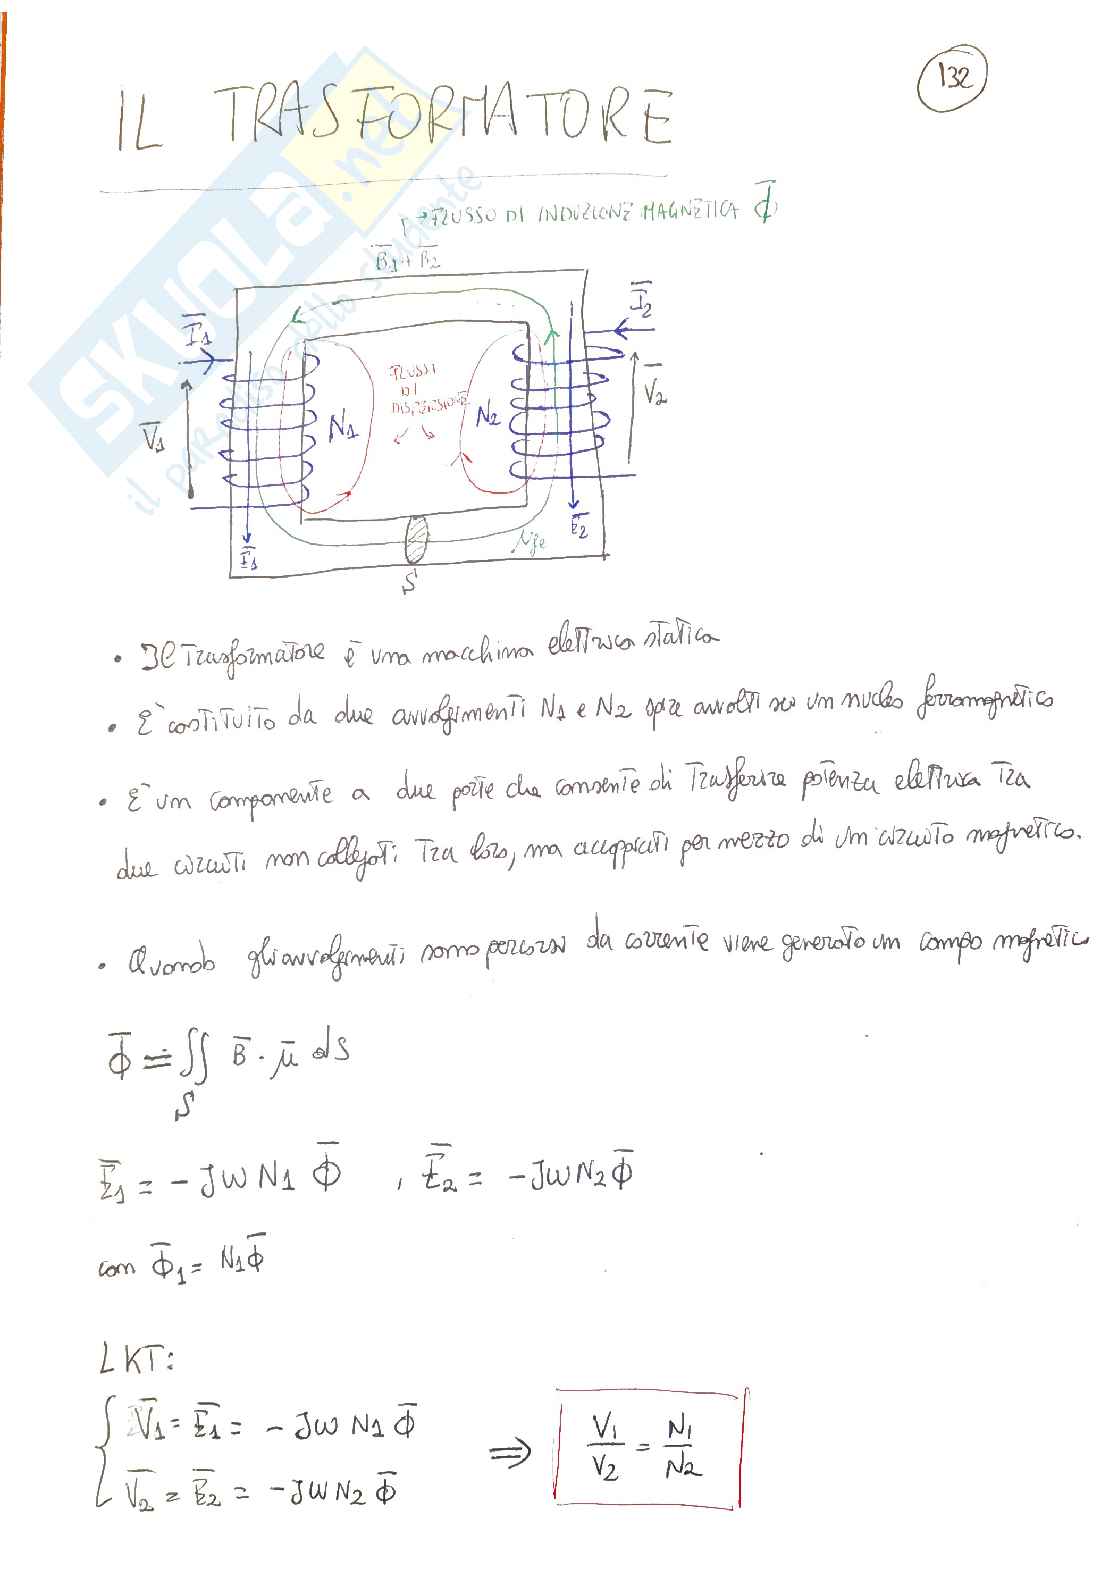 132
IL TRASFORMATORE
SKUOLA.net
il paradiso dello studente
→ FLUSSO DI INDUZIONE MAGNETICA Φ̅
B̅1 + B̅2
I̅1
I̅2
V̅1
N1
FLUSSI
DI
DISPERSIONE
N2
V̅2
E̅1
E̅2
μfe
S
• Il trasformatore è una macchina elettrica statica
• E' costituito da due avvolgimenti N1 e N2 spire avvolti su un nucleo ferromagnetico
• E' un componente a due porte che consente di trasferire potenza elettrica tra
due circuiti non collegati tra loro, ma accoppiati per mezzo di un circuito magnetico.
• Quando gli avvolgimenti sono percorsi da corrente viene generato un campo magnetico
Φ̅ ≐ ∬ B̅ · μ̅ dS
S
E̅1 = - JW N1 Φ̅ , E̅2 = - JW N2 Φ̅
con Φ̅1 = N1 Φ̅
LKT:
{ V̅1 = E̅1 = - JW N1 Φ̅
V̅2 = E̅2 = - JW N2 Φ̅
⇒ V1/V2 = N1/N2